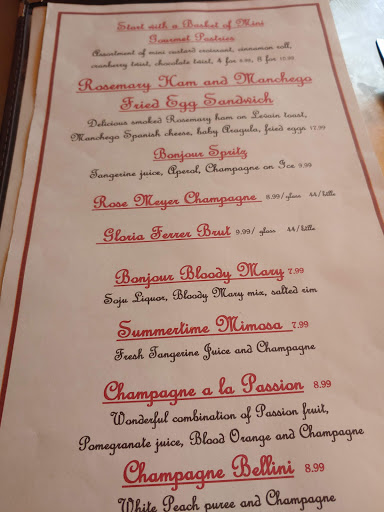 Start with a Basket of Mini
Gourmet Pastries
Assortment of mini custard croissant, cinnamon roll,
cranberry twist, chocolate twist, 4 for 6.99, 8 for 12.99
Rosemary Ham and Manchego
Fried Egg Sandwich
Delicious smoked Rosemary ham on Levain toast,
Manchego Spanish cheese, baby Arugula, fried eggs 17.99
Bonjour Spritz
Tangerine juice, Aperol, Champagne on Ice 9.99
Rose Meyer Champagne 8.99/glass 44/bttle
Gloria Ferrer Brut 9.99/ glass 44/bttle
Bonjour Bloody Mary 7.99
Soju Liquor, Bloody Mary mix, salted rim
Summertime Mimosa 7.99
Fresh Tangerine Juice and Champagne
Champagne a la Passion 8.99
Wonderful combination of Passion fruit,
Pomegranate juice, Blood Orange and Champagne
Champagne Bellini 8.99
White Peach puree and Champagne